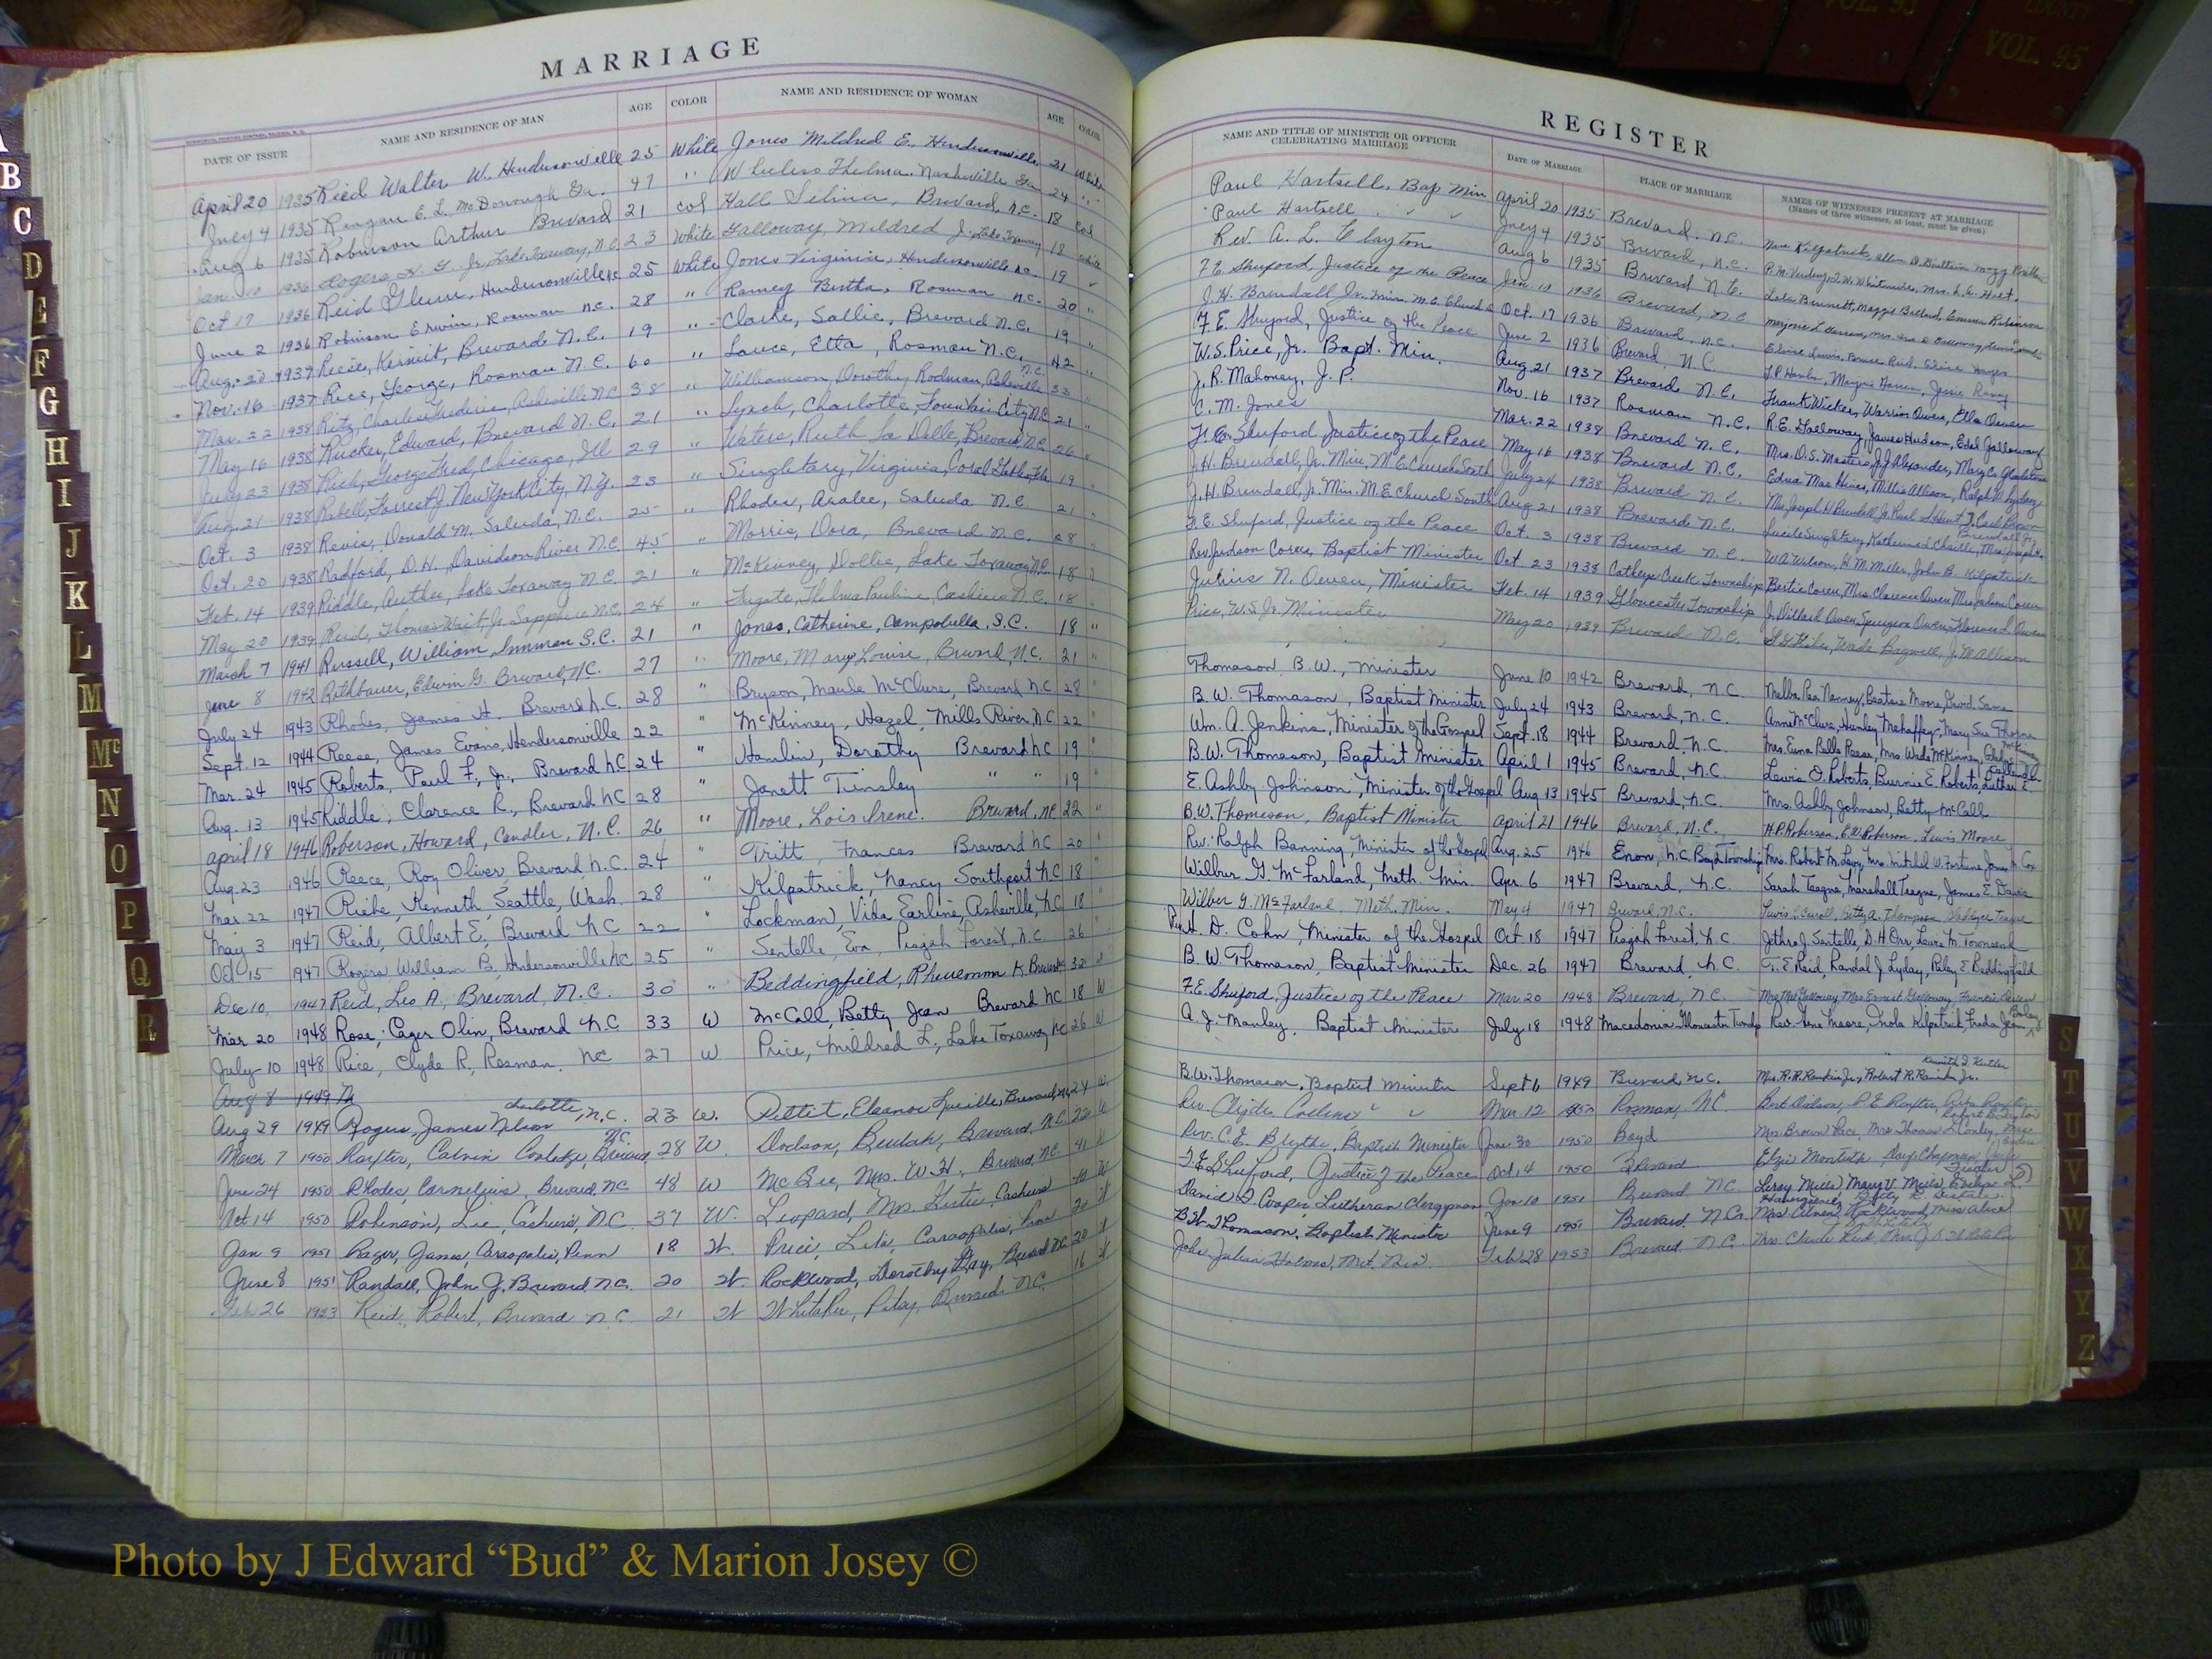 MARRIAGE
DATE OF ISSUE NAME AND RESIDENCE OF MAN AGE COLOR NAME AND RESIDENCE OF WOMAN AGE COLOR
April 20 1935 Reid Walter W. Hendersonville 25 White Jones Mildred E. Hendersonville 21 White
July 4 1935 Reagan E. L. McDonough Ga. 47 " Wheeless Thelma Nashville Ga 24 "
Aug 6 1935 Robinson Arthur Brevard 21 col Hall Selina, Brevard, N.C. 18 col
Jan. 10 1936 Rogers Jr. Lake Toxaway, N.C. 23 White Galloway Mildred J. Lake Toxaway 18 White
Oct 17 1936 Reid Glenn, Hendersonville N.C. 25 White Jones Virginia, Hendersonville N.C. 19 "
June 2 1936 Robinson Erwin, Rosman N.C. 28 " Ramey Bertha, Rosman N.C. 20 "
Aug. 20 1937 Reese, Kermit, Brevard N.C. 19 " Clarke, Sallie, Brevard N.C. 19 "
Nov. 16 1937 Rice, George, Rosman N.C. 60 " Lance, Etta, Rosman N.C. 42 "
Mar. 22 1938 Ritz, Charles Frederic, Asheville N.C. 38 " Williamson, Dorothy Rodman, Asheville N.C. 33 "
May 16 1938 Rucker, Edward, Brevard N.C. 21 " Lynch, Charlotte, Fountain City N.C. 21 "
July 23 1938 Rich, George Fred, Chicago, Ill 29 " Waters, Ruth La Delle, Brevard N.C. 26 "
Aug. 21 1938 Rabell, Forrest J. New York City, N.Y. 23 " Singletary, Virginia, Coral Gables, Fla 19 "
Oct. 3 1938 Revis, Donald M. Saluda, N.C. 25 " Rhodes, Aralee, Saluda N.C. 21 "
Oct. 20 1938 Radford, D.H., Davidson River N.C. 45 " Morris, Dora, Brevard N.C. 28 "
Feb. 14 1939 Riddle, Luther, Lake Toxaway N.C. 21 " McKinney, Dollie, Lake Toxaway N.C. 18 "
May 20 1939 Reid, Thomas Wait Jr. Sapphire N.C. 24 " Fugate, Thelma Pauline, Cashiers N.C. 18 "
March 7 1941 Russell, William, Inman S.C. 21 " Jones, Catherine, Campobella, S.C. 18 "
June 8 1942 Rathbauer, Edwin G. Brevard, N.C. 27 " Moore, Mary Louise, Brevard, N.C. 21 "
July 24 1943 Rhodes, James H. Brevard N.C. 28 " Bryson, Maude McClure, Brevard N.C. 28 "
Sept. 12 1944 Reese, James Evans, Hendersonville 22 " McKinney, Hazel, Mills River, N.C. 22 "
Mar. 24 1945 Roberts, Paul F., Jr., Brevard N.C. 24 " Hamlin, Dorothy Brevard N.C. 19 "
Aug. 13 1945 Riddle, Clarence R., Brevard N.C. 28 " Janett Tinsley " " 19 "
April 18 1946 Roberson, Howard, Candler, N.C. 26 " Moore, Lois Irene. Brevard, N.C. 22 "
Aug. 23 1946 Reece, Roy Oliver, Brevard N.C. 24 " Tritt, Frances Brevard N.C. 20 "
Mar. 22 1947 Riebe, Kenneth, Seattle, Wash. 28 " Kilpatrick, Nancy Southport N.C. 18 "
May 3 1947 Reid, Albert E., Brevard N.C. 22 " Lockman, Vida Earline, Asheville, N.C. 18 "
Oct 15 1947 Rogers William B., Hendersonville N.C. 25 " Sentelle, Eva, Pisgah Forest, N.C. 26 "
Dec 10, 1947 Reid, Leo A., Brevard, N.C. 30 " Beddingfield, Rhuemma K. Brevard N.C. 32 "
Mar 20 1948 Rose, Cager Olin, Brevard N.C. 33 W McCall, Betty Jean Brevard N.C. 18 W
July 10 1948 Rice, Clyde R., Rosman, N.C. 27 W Price, Mildred L., Lake Toxaway N.C. 26 W
Aug 8 1949
Aug 29 1949 Rogers, James Nelson Charlotte, N.C. 23 W. Pettit, Eleanor Lucille, Brevard N.C. 24 W.
March 7 1950 Raxter, Calvin Coolidge, Brevard, N.C. 28 W. Dodson, Beulah, Brevard, N.C. 22 W
June 24 1950 Rhodes, Cornelius, Brevard, N.C. 48 W McGee, Mrs. W.H., Brevard, N.C. 41 W
Oct 14 1950 Robinson, Lee, Cashiers, N.C. 37 W. Leopard, Mrs. Cashiers 40 W
Jan 9 1951 Rager, James, Coraopolis, Penn 18 W. Price, Lila, Coraopolis, Penn 20 W
June 8 1951 Randall, John J. Brevard N.C. 20 W. Rockwood, Dorothy Ray, Brevard N.C. 20 W
Feb 26 1953 Reid, Robert, Brevard N.C. 21 W Whitaker, Patsy, Brevard N.C. 16 W
REGISTER
NAME AND TITLE OF MINISTER OR OFFICER CELEBRATING MARRIAGE DATE OF MARRIAGE PLACE OF MARRIAGE NAMES OF WITNESSES PRESENT AT MARRIAGE
(Names of three witnesses, at least, must be given)
Paul Hartsell, Bap Min April 20 1935 Brevard, N.C.
Paul Hartsell " " July 4 1935 Brevard, N.C.
Rev. A. L. Clayton Aug 6 1935 Brevard N.C. Lola Bennett, Maggie Ballard, Emma Robinson
F. E. Shuford, Justice of the Peace Jan. 10 1936 Brevard, N.C.
J. H. Brendall Jr. Min. M.E. Church S. Oct. 17 1936 Brevard, N.C.
F. E. Shuford, Justice of the Peace June 2 1936 Brevard, N.C.
W.S. Price, Jr. Bapt. Min. Aug. 21 1937 Brevard N.C. Frank Wicker, Warrior Owen, Ella Owen
J. R. Mahoney, J. P. Nov. 16 1937 Rosman N.C. R.E. Galloway, James Hudson, Edd Galloway
C. M. Jones Mar. 22 1938 Brevard N.C. Mrs. O.S. Masters, J.J. Alexander, Mary C. Gladstone
F. E. Shuford Justice of the Peace May 16 1938 Brevard N.C. Edna Mae Hines, Millie Allison, Ralph W. Lyday
J.H. Brendall, Jr. Min., M.E. Church South July 24 1938 Brevard N.C.
J.H. Brendall, Jr. Min. M.E. Church South Aug 21 1938 Brevard N.C.
F. E. Shuford, Justice of the Peace Oct. 3 1938 Brevard N.C. W.A. Wilson, D.M. Miller, John B. Kilpatrick
Rev. Judson Corn, Baptist Minister Oct 23 1938 Catheys Creek Township
Julius N. Owen, Minister Feb. 14 1939 Gloucester Township J. Dillard Owen, Spurgeon Owen, Florence L. Owen
Price, W.S. Jr. Minister May 20 1939 Brevard N.C. Wade Bagwell, J.M. Allison
Thomason B.W., Minister June 10 1942 Brevard, N.C.
B. W. Thomason, Baptist Minister July 24 1943 Brevard, N.C. Anne McClure, Hunley Mehaffey, Mary Sue Thorne
Wm. A. Jenkins, Minister of the Gospel Sept. 18 1944 Brevard, N.C.
B.W. Thomason, Baptist Minister April 1 1945 Brevard, N.C. Lewis O. Roberts, Burnie E. Roberts, Luther E.
E. Ashby Johnson, Minister of the Gospel Aug 13 1945 Brevard, N.C. Mrs. Ashby Johnson, Betty McCall
B.W. Thomason, Baptist Minister April 21 1946 Brevard, N.C. H.P. Roberson, E.W. Roberson, Lewis Moore
Rev. Ralph Banning, Minister of the Gospel Aug. 25 1946 Enon, N.C. Boyd Township Mrs. Robert M. Levy, Mrs. Mitchel W. Fortune, James M. Cox
Wilbur G. McFarland, Meth. Min. Apr. 6 1947 Brevard, N.C. Sarah Teague, Marshall Teague, James E. Davis
Wilbur G. McFarland, Meth. Min. May 4 1947 Brevard, N.C.
Rev. H. D. Cohn, Minister of the Gospel Oct 18 1947 Pisgah Forest, N.C. Jethro J. Sentelle, D.H. Orr, Lewis M. Townsend
B. W. Thomason, Baptist Minister Dec. 26 1947 Brevard, N.C. T. E. Reid, Randal J. Lyday, Raley E. Beddingfield
F.E. Shuford, Justice of the Peace Mar. 20 1948 Brevard, N.C. Mrs. Galloway, Mrs. Ernest Galloway, Frankie Owen
A. J. Manley, Baptist Minister July 18 1948 Macedonia Gloucester Twnshp Rev. Gene Moore, Viola Kilpatrick, Freda Jean
Kenneth I. Kistler
B.W. Thomason, Baptist Minister Sept 6 1949 Brevard, N.C. Mrs. R.R. Rankin Jr., Robert R. Rankin Jr.
Rev. Clyde Collins, " " Mar. 12 1950 Rosman, N.C.
Rev. C.E. Blythe, Baptist Minister June 30 1950 Boyd
F.E. Shuford, Justice of the Peace Oct. 14 1950 Brevard
David Cooper, Lutheran Clergyman Jan 10 1951 Brevard N.C. Leroy Mills, Mary V. Mills,
B.W. Thomason, Baptist Minister June 9 1951 Brevard, N.C.
John Julian Feb 28 1953 Brevard N.C.
B
C
D
E
F
G
H
I
J
K
L
M
Mc
N
O
P
Q
R
S
T
U
V
W
X
Y
Z
VOL. 93
COUNTY
VOL. 95
Photo by J Edward “Bud” & Marion Josey ©